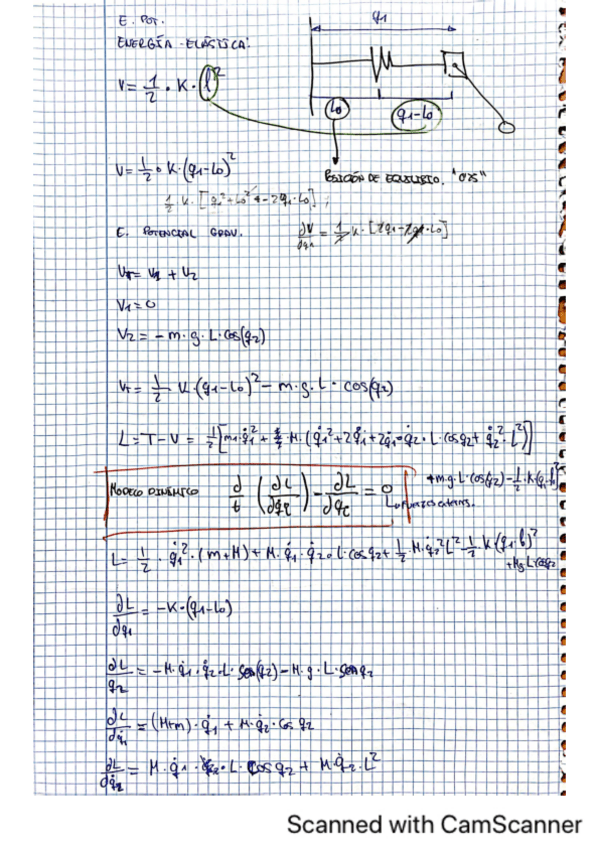 E. POT.
ENERGÍA ELÁSTICA:
q1
V = 1/2 · K · l²
l0
q1-l0
V = 1/2 · K · (q1-l0)²
POSICIÓN DE EQUILIBRIO. "OJS"
1/2 K · [q1² + l0² - 2q1·l0]
E. POTENCIAL GRAV.
∂V/∂q1 = 1/2 K · [2q1-2·l0]
VT = V1 + V2
V1 = 0
V2 = -m·g·L·cos(q2)
VT = 1/2 · K·(q1-l0)² - m·g·L·cos(q2)
L = T-V = 1/2 [m·q̇1² + M·(q̇1² + 2q̇1·q̇2·L·cosq2 + q̇2²·L²)]
+m·g·L·cos(q2) - 1/2·K·(q1-l0)²
MODELO DINÁMICO ∂/t (∂L/∂q̇i) - ∂L/∂qi = 0
L = 1/2 · q̇1² · (m+M) + M·q̇1·q̇2·L·cosq2 + 1/2·M·q̇2²L² - 1/2·K(q1-l0)²
+Mg·L·cosq2
∂L/∂q1 = -K·(q1-l0)
∂L/q2 = -M·q̇1·q̇2·L·sen(q2) - M·g·L·senq2
∂L/∂q̇1 = (M+m)·q̇1 + M·q̇2·cos q2
∂L/∂q̇2 = M·q̇1·L·cosq2 + M·q̇2·L²
Scanned with CamScanner